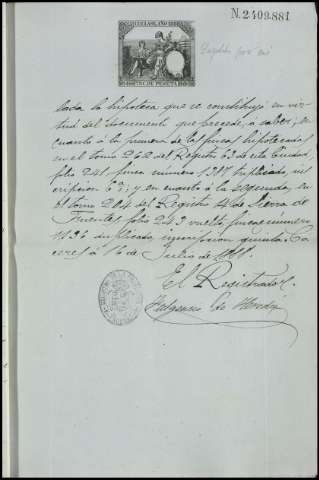 N. 2409,881
tada la hipoteca que se constituyó en vir-
tud del documento que precede, á saber; en
cuanto á la primera de las fincas hipotecadas
en el tomo 262 del Registro 63 de esta Ciudad,
folio 241 finca número 1317 triplicado, ins-
cripcion 6ª; y en cuanto á la segunda, en
el tomo 204 del Registro 4 de Sierra de
Fuentes folio 243 vuelto, finca número
duplicado, inscripcion quinta. Ca-
ceres á 16 de Julio de
El Registrador